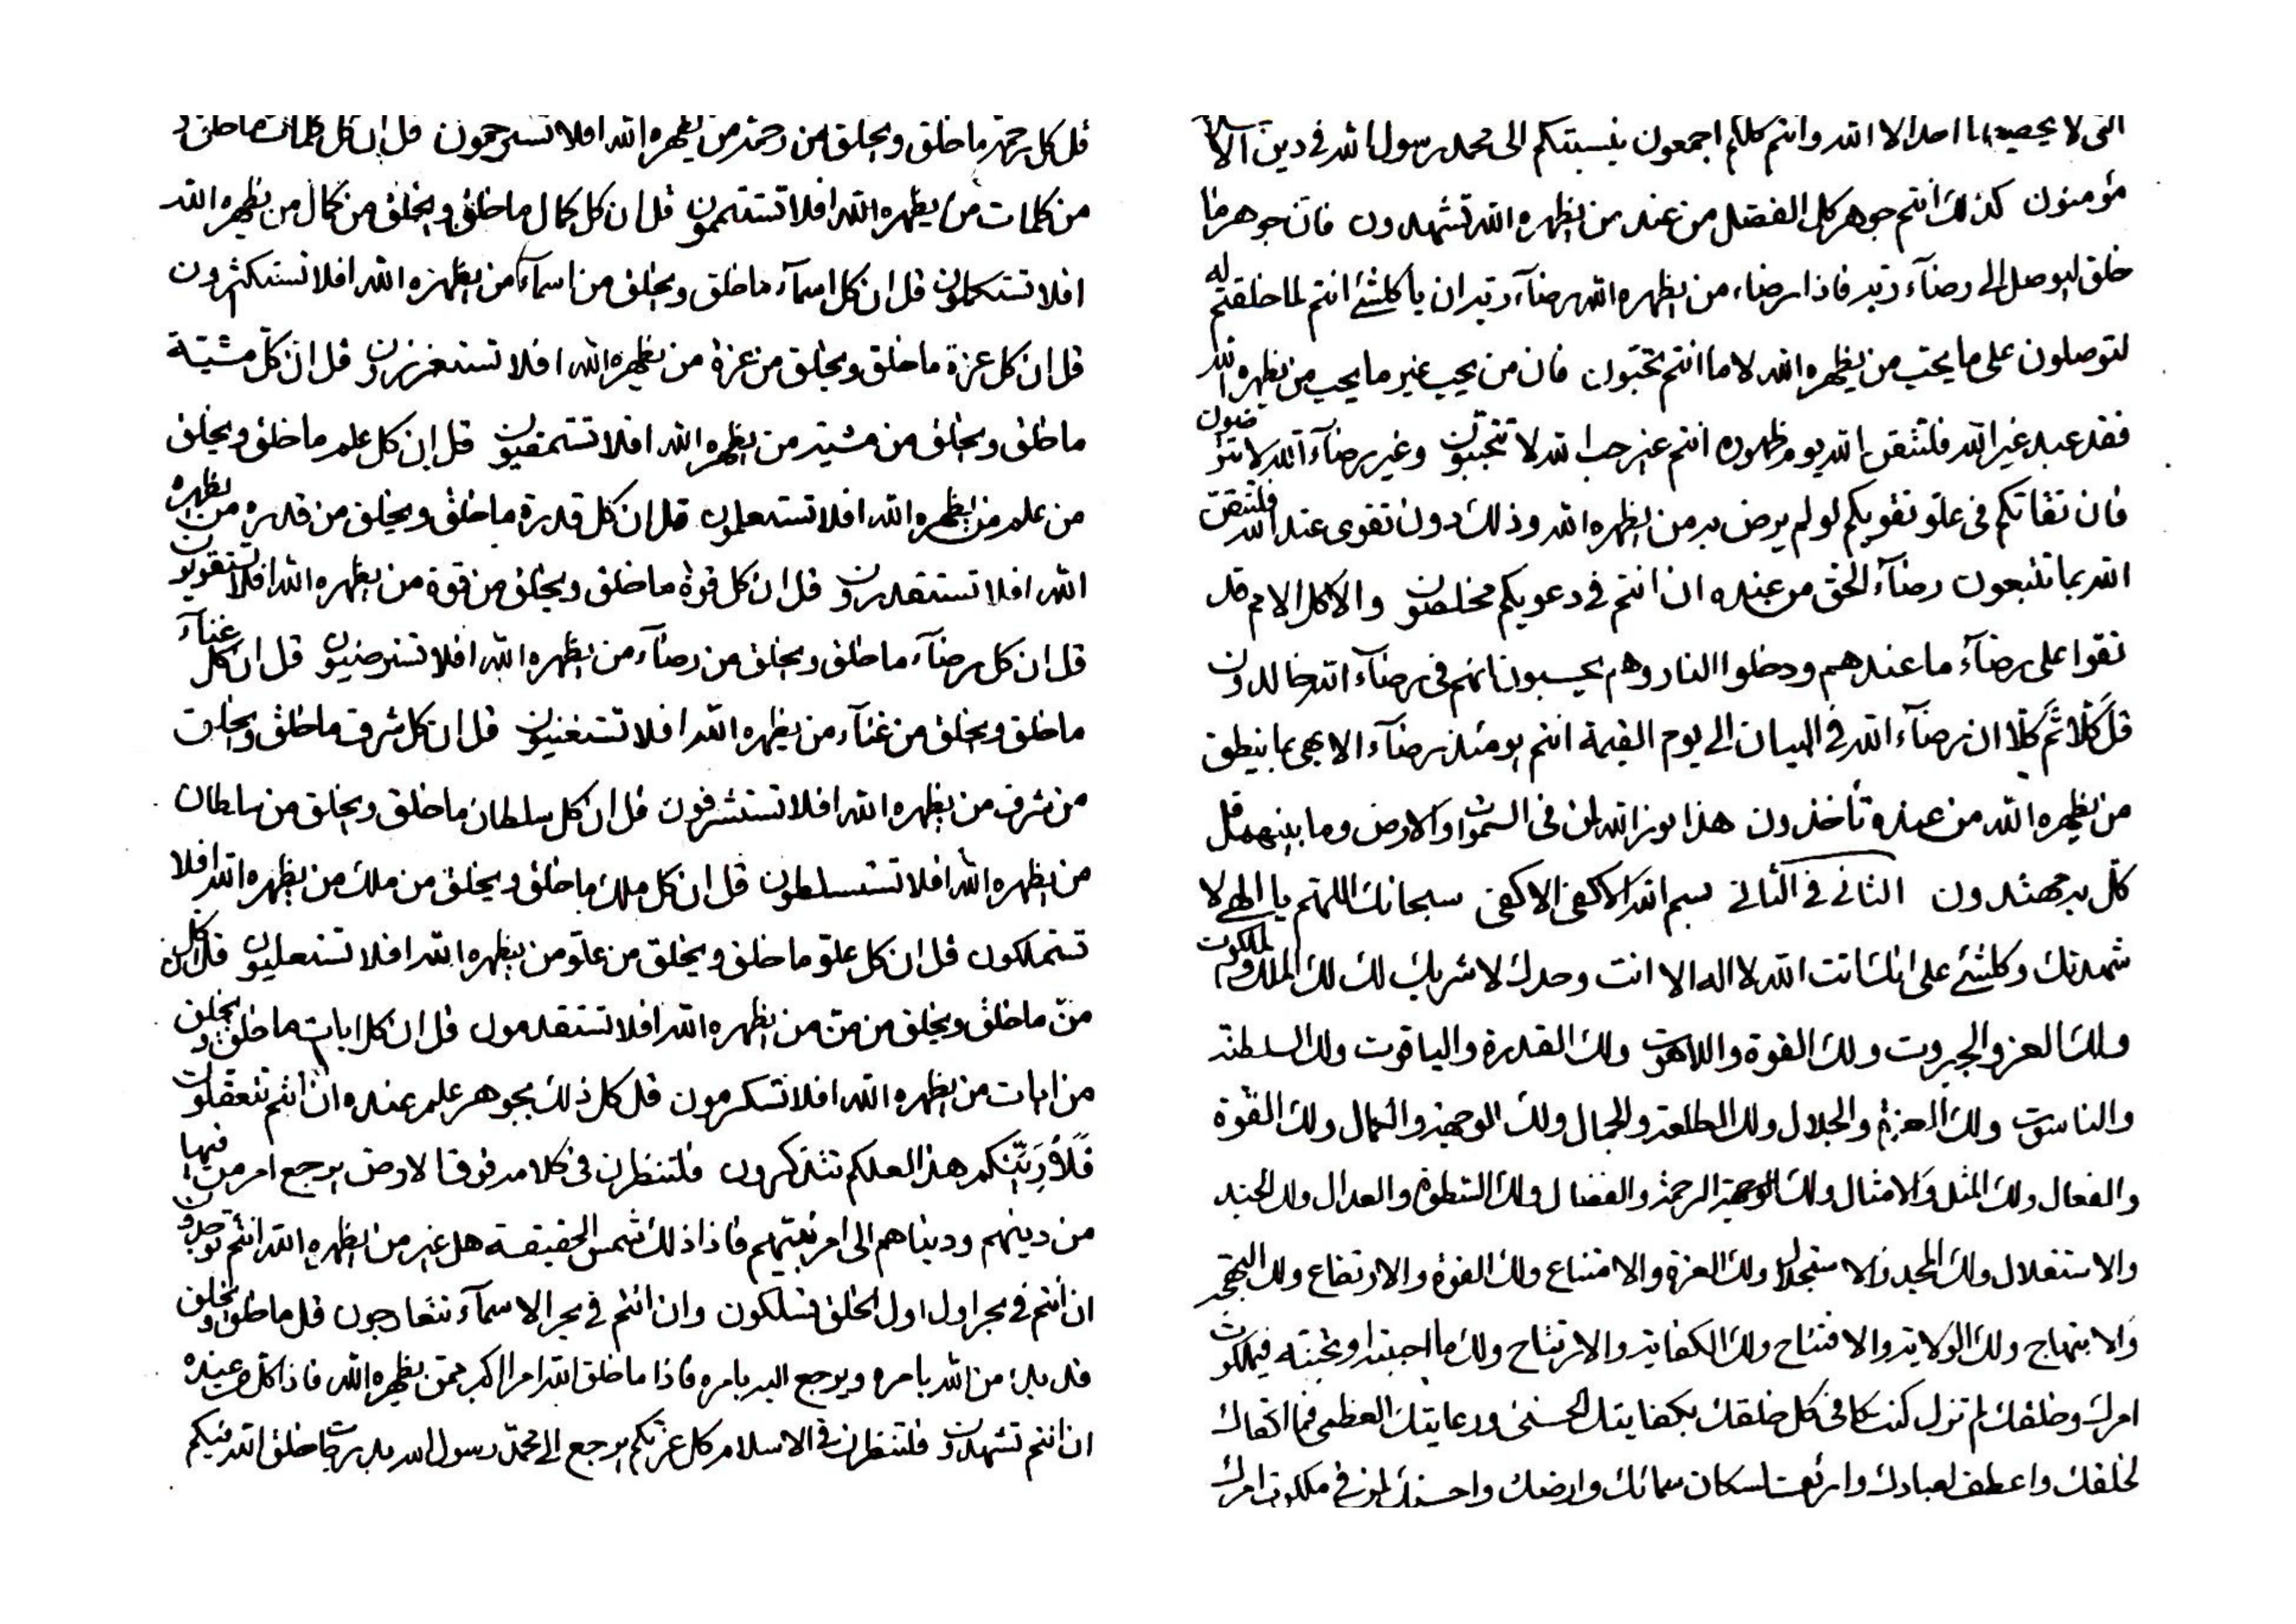 التى لا يحصيها احد الا الله وانتم كلكم اجمعون بنسبتكم الى محمد رسول الله فى دين الاسلام
مؤمنون كذلك انتم جوهر كل الفضل من عند من يظهره الله تشهدون فان جوهر ما
خلق ليوصل الى رضاء ربه فاذا رضاء من يظهره الله رضاء ربه ان يا كلشئ انتم لما خلقتم له
لتوصلون على ما يحب من يظهره الله لا ما انتم تحبون فان من يحب غير ما يحب من يظهره الله
فقد عبد غير الله فلتتقن الله يوم ظهوره انتم غير حب الله لا تحببون وغير رضاء الله لا ترضون
فان تقاتكم فى علو تقويكم لو لم يرض به من يظهره الله وذلك دون تقوى عند الله فلتتقن
الله بما تتبعون رضاء الحق من عنده ان انتم فى دعويكم مخلصون والا كل الامم قد
تقوا على رضاء ما عندهم ودخلوا النار وهم يحسبون انهم فى رضاء الله خالدون
قل كلا ثم كلا ان رضاء الله فى البيان الى يوم القيمة انتم يومئذ رضاء الابهى بما ينطق
من يظهره الله من عنده تأخذون هذا نور الله لمن فى السموات والارض وما بينهما قل
كل به مهتدون الثانى فى الثانى بسم الله الاكفى الاكفى سبحانك اللهم يا الهى لا
شهدنك وكلشئ على انك انت الله لا اله الا انت وحدك لا شريك لك لك الملك والملكوت
ولك العز والجبروت ولك القوة واللاهوت ولك القدرة والياقوت ولك السلطنة
والناسوت ولك العزة والجلال ولك الطلعة والجمال ولك الوجهة والكمال ولك القوة
والفعال ولك المثل والامثال ولك الرحمة والفضال ولك السطوة والعدال ولك
والاستقلال ولك المجد والاستجلال ولك العزة والامتناع ولك القوة والارتفاع ولك البهجة
والابتهاج ولك الولاية والافتتاح ولك الكفاية والارتياح ولك ما احببته او تحبنه فى ملكوت
امرك وخلقك لم تزل كنت كافى كل خلقك بكفايتك الحسنى ورعايتك العظمى فما اكفاك
لخلقك واعطف لعبادك وارئفت لسكان سمائك وارضك واحسنك لمن فى ملكوت امرك
قل كل رحمة ما خلق ويخلق من رحمة من يظهره الله افلا تسترحمون قل ان كل كلمات ما خلق و
من كلمات من يظهره الله افلا تستتممون قل ان كل كمال ما خلق ويخلق من كمال من يظهره الله
افلا تستكملون قل ان كل اسماء ما خلق ويخلق من اسماء من يظهره الله افلا تستكثرون
قل ان كل عزة ما خلق ويخلق من عزة من يظهره الله افلا تستعززون قل ان كل مشية
ما خلق ويخلق من مشية من يظهره الله افلا قل ان كل علم ما خلق ويخلق
من علم من يظهره الله افلا تستعلمون قل ان كل قدرة ما خلق ويخلق من قدرة من يظهره
الله افلا تستقدرون قل ان كل قوة ما خلق ويخلق من قوة من يظهره الله افلا تستقويون
قل ان كل رضاء ما خلق ويخلق من رضاء من يظهره الله افلا تسترضيون قل ان كل غناء
ما خلق ويخلق من غناء من يظهره الله افلا تستغنيون قل ان كل شرف ما خلق ويخلق
من شرف من يظهره الله افلا تستشرفون قل ان كل سلطان ما خلق ويخلق من سلطان
من يظهره الله افلا تستسلطون قل ان كل ملك ما خلق ويخلق من ملك من يظهره الله افلا
تستملكون قل ان كل علو ما خلق ويخلق من علو من يظهره الله افلا تستعليون قل ان كل
من ما خلق ويخلق من من من يظهره الله افلا تستقدمون قل ان كل ايات ما خلق ويخلق
من ايات من يظهره الله افلا تسكرمون قل كل ذلك بجوهر علم عنده ان انتم تتعقلون
فلاؤدبنكم هذا لعلكم تتذكرون فلتنظرن فى كلا من فوق الارض يرجع امر من فيها
من دينهم ودنياهم الى امر نبيهم فاذا ذلك شمس الحقيقة هل غير من يظهره الله انتم توحدون
ان انتم فى بحر اول اول الخلق تسلكون وان انتم فى بحر الاسماء تتعارجون قل ما خلق ويخلق
قد بدء من الله بامره ويرجع اليه بامره فاذا ما خلق الله امرا اكبر عمن يظهره الله فاذا كل من عنده
ان انتم تشهدون فلتنظرن فى الاسلام كل عزتكم يرجع الى محمد رسول الله ما خلق الله فيكم